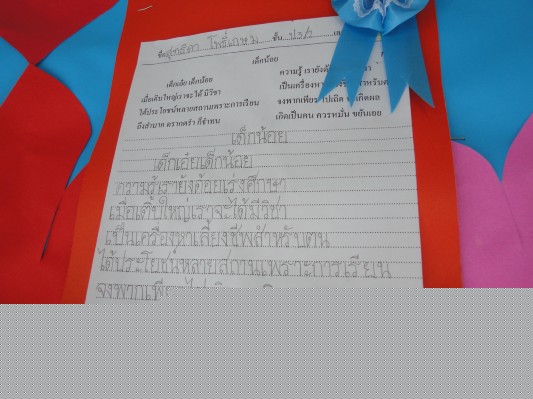 ชื่อ สุทธิดา โพธิ์เกษม ชั้น ป.3/2
เด็กน้อย
เด็กเอ๋ย เด็กน้อย
ความรู้ เรายัง
เมื่อเติบใหญ่เราจะได้ มีวิชา
เป็นเครื่องหา
ได้ประโยชน์หลายสถานเพราะการเรียน
จงพากเพียร ไปเถิด จะเกิดผล
ถึงลำบาก ตรากตรำ ก็จำทน
เกิดเป็นคน ควรหมั่น ขยันเอย
เด็กน้อย
เด็กเอ๋ยเด็กน้อย
ความรู้เรายังด้อยเร่งศึกษา
เมื่อเติบใหญ่เราจะได้มีวิชา
เป็นเครื่องหาเลี้ยงชีพสำหรับตน
ได้ประโยชน์หลายสถานเพราะการเรียน
จงพากเพียร